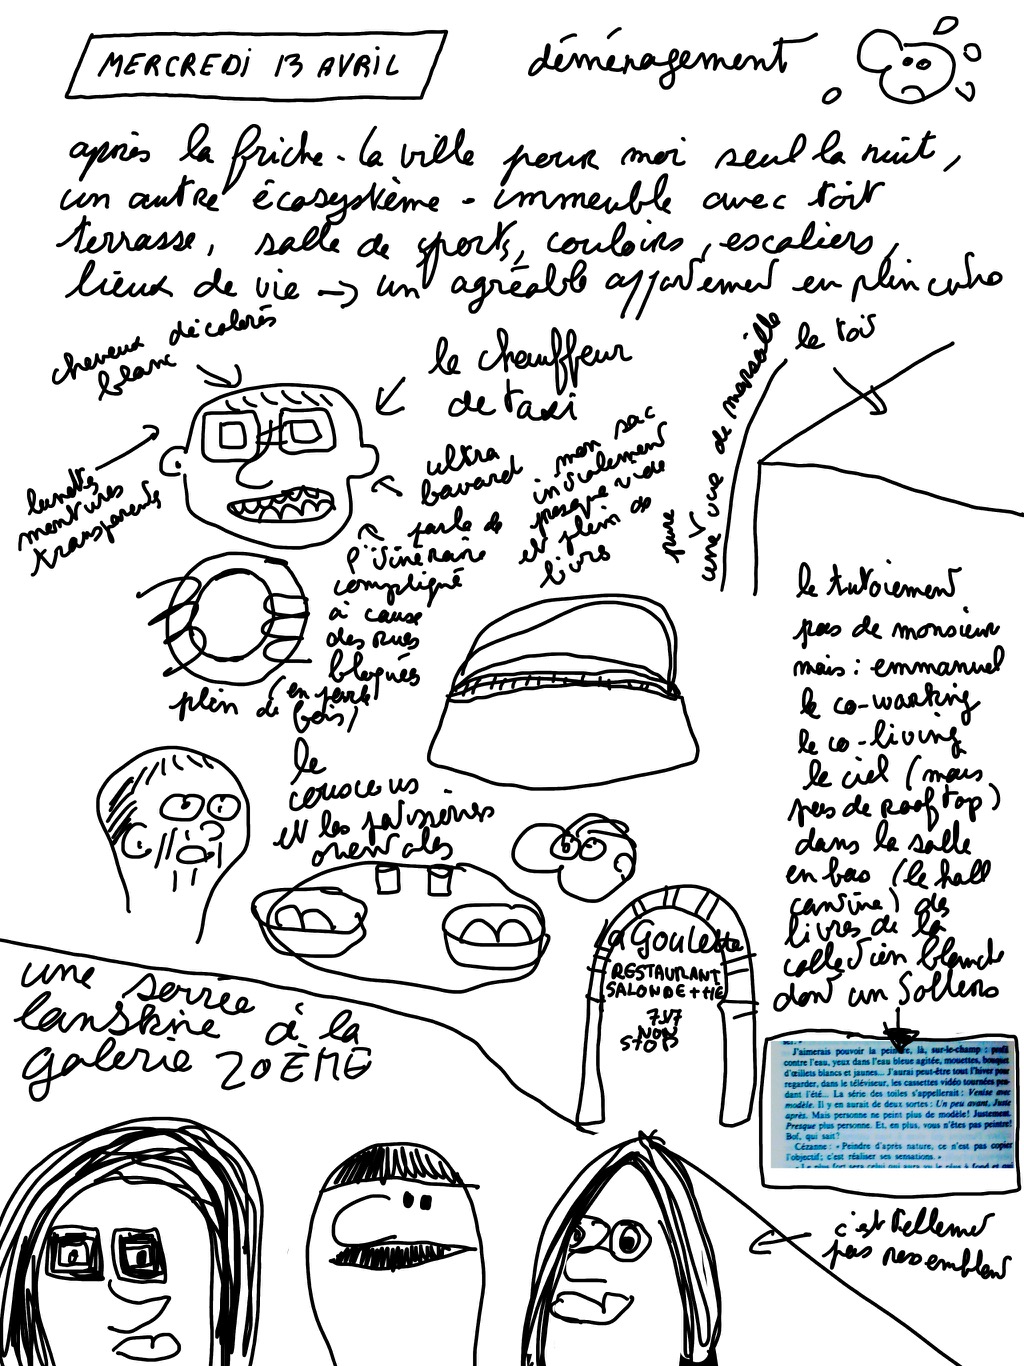 MERCREDI 13 AVRIL
déménagement
après la friche. la ville pour moi seul la nuit,
un autre écosystème - immeuble avec toit
terrasse, salle de sports, couloirs, escaliers,
lieux de vie → un agréable appartement en plein centre
cheveux décolorés
blanc
le chauffeur
de taxi
lunettes
montures
transparentes
ultra
bavard
parle de
l'itinéraire
compliqué
à cause
des rues
bloquées
plein de (en forte
bois)
mon sac
initialement
presque vide
et plein de
livres
pure
une vue de marseille
le toit
le tutoiement
pas de monsieur
mais : emmanuel
le co-working
le co-living
le ciel (mais
pas de rooftop)
dans la salle
en bas (le hall
cantine) des
livres de la
collection blanche
dont un Sollers
le
couscous
et les patisseries
orientales
La Goulette
RESTAURANT
SALON DE THÉ
7J/7
NON
STOP
une soirée
lanskine à la
galerie 20ÈME
J'aimerais pouvoir la peindre, là, sur-le-champ : profil
contre l'eau, yeux dans l'eau bleue agitée, mouettes, bouquet
d'œillets blancs et jaunes... J'aurai peut-être tout l'hiver pour
regarder, dans le téléviseur, les cassettes vidéo tournées pen-
dant l'été... La série des toiles s'appellerait : Venise avec
modèle. Il y en aurait de deux sortes : Un peu avant, Juste
après. Mais personne ne peint plus de modèle! Justement.
Presque plus personne. Et, en plus, vous n'êtes pas peintre!
Bof, qui sait?
Cézanne : « Peindre d'après nature, ce n'est pas copier
l'objectif; c'est réaliser ses sensations. »
« Le plus fort sera celui qui aura vu le plus à fond et qui
c'est tellement
pas ressemblant